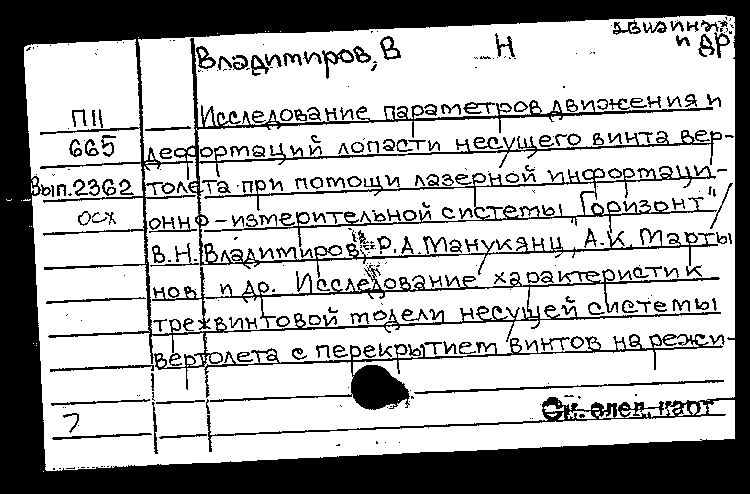 Владимиров, В Н и др
П11 Исследование параметров движения и
665 деформаций лопасти несущего винта вер-
Вып.2362 толета при помощи лазерной информаци-
осх онно-измерительной системы "Горизонт"/
В.Н. Владимиров, Р.А. Манукянц, А.К. Марты
нов и др. Исследование характеристик
трехвинтовой модели несущей системы
вертолета с перекрытием винтов на режи-
См. след. карт